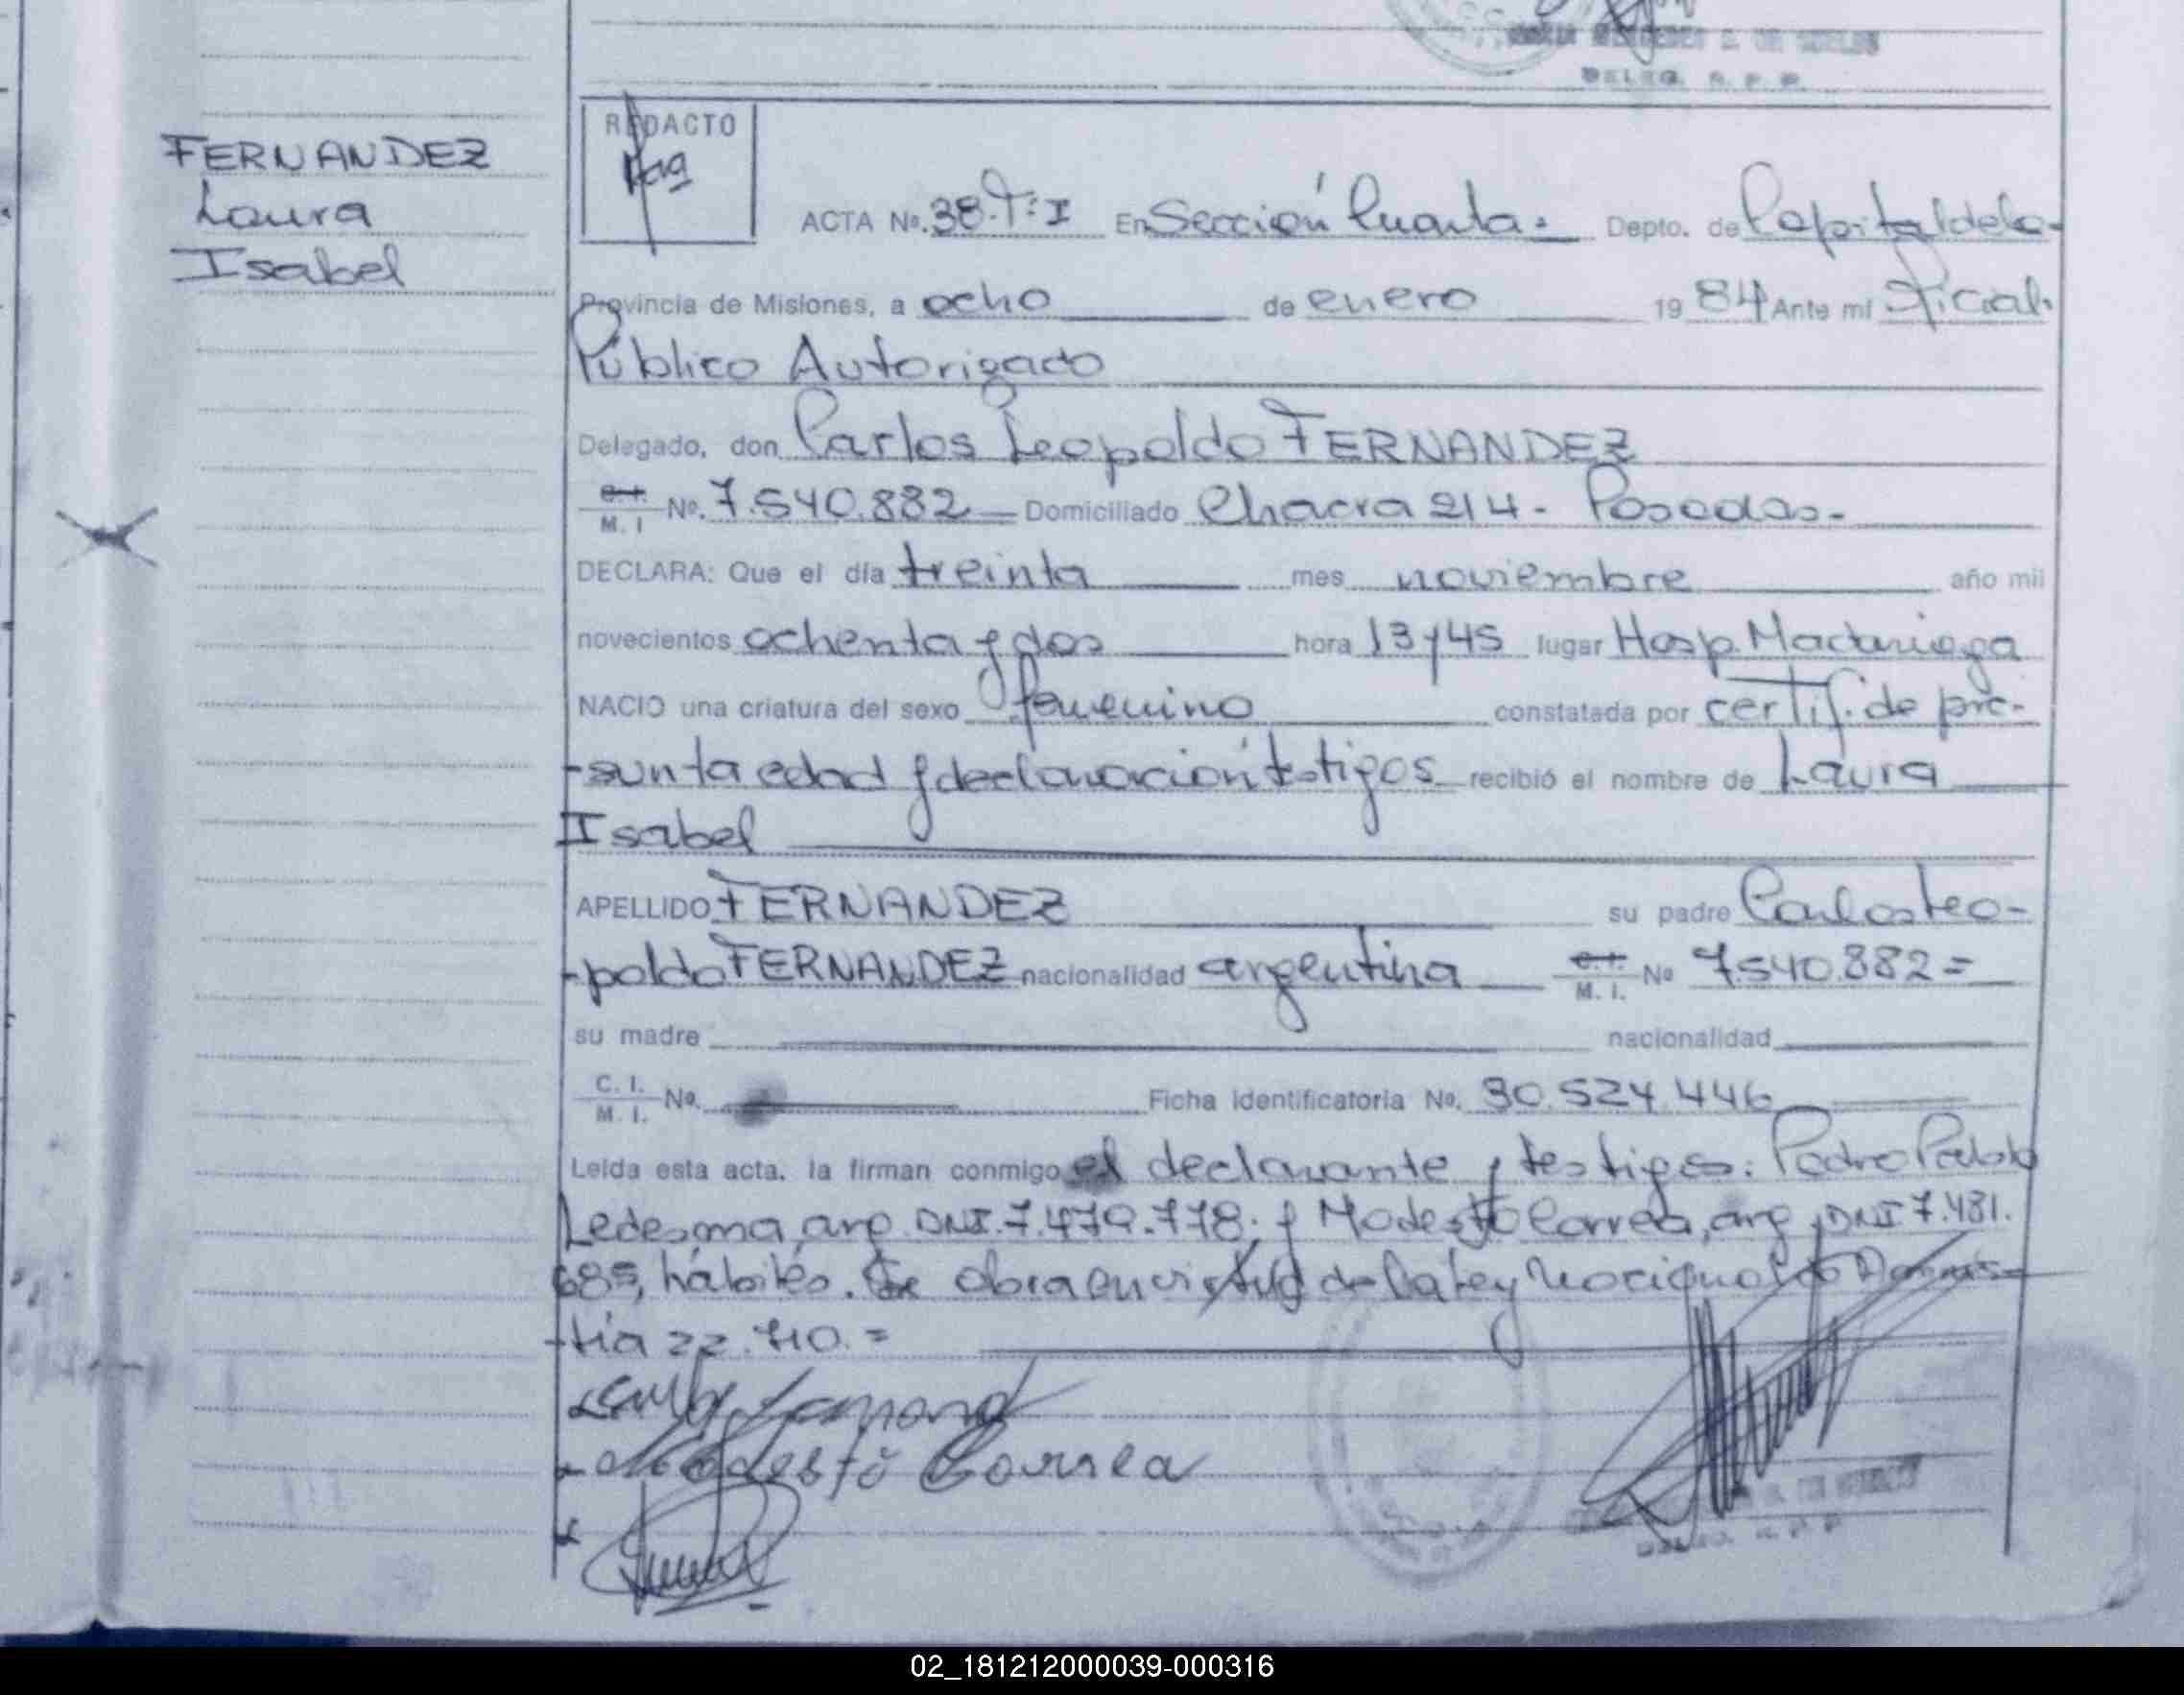 DELEG. R. P. P.
REDACTO
FERNANDEZ
Laura
Isabel
ACTA No. 38.Tº I En Sección Cuarta. Depto. de Capital de la
Provincia de Misiones, a ocho de enero 1984 Ante mi Oficial
Público Autorizado
Delegado, don Carlos Leopoldo FERNANDEZ
C.I. M. I No. 7.540.882 Domiciliado Chacra 214 - Posadas-
DECLARA: Que el día treinta mes noviembre año mil
novecientos ochenta y dos hora 13y45 lugar Hosp. Madariaga
NACIO una criatura del sexo femenino constatada por certif. de pre-
-sunta edad y declaración testigos recibió el nombre de Laura
Isabel
APELLIDO FERNANDEZ su padre Carlos Leo-
-poldo FERNANDEZ nacionalidad argentina C.I. M. I. No 7.540.882=
su madre nacionalidad
C. I. M. I. No. Ficha Identificatoria No. 30.524.446
Leída esta acta, la firman conmigo el declarante y testigos: Pedro Pablo
Ledesma, arg. DNI. 7.479.778. y Modesto Correa, arg, DNI 7.481.
685, hábiles. Se obra en virtud de la Ley Nacional de Amnis-
-tía 22.710.=
Modesto Correa
02_181212000039-000316